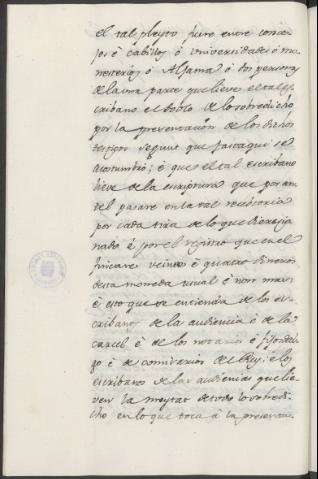 el tal pleyto fuere entre conce-
jos è cabillos è Universidades ò mo-
nesterios ò Aljama ò dos personas
de la una parte que lieve el tal es-
cribano el doblo de lo sobredicho
por la presentacion de los dichos
testigos segunt que fasta aqui se
acostumbró; è que el tal escribano
lieve de la escriptura que por an-
te él pasare en la tal
por cada tira de lo que diere sig-
nado è por el registro que en él
fincare veinte è quatro dineros
desta moneda usual è non mas;
è esto que se entienda de los es-
cribanos de la audiencia è de la
carcel è de los notarios è fijosdal-
go è de del Rey; è los
escribanos de las audiencias que lie-
ven la meytat de todo lo sobredi-
cho en lo que toca à la presenta-